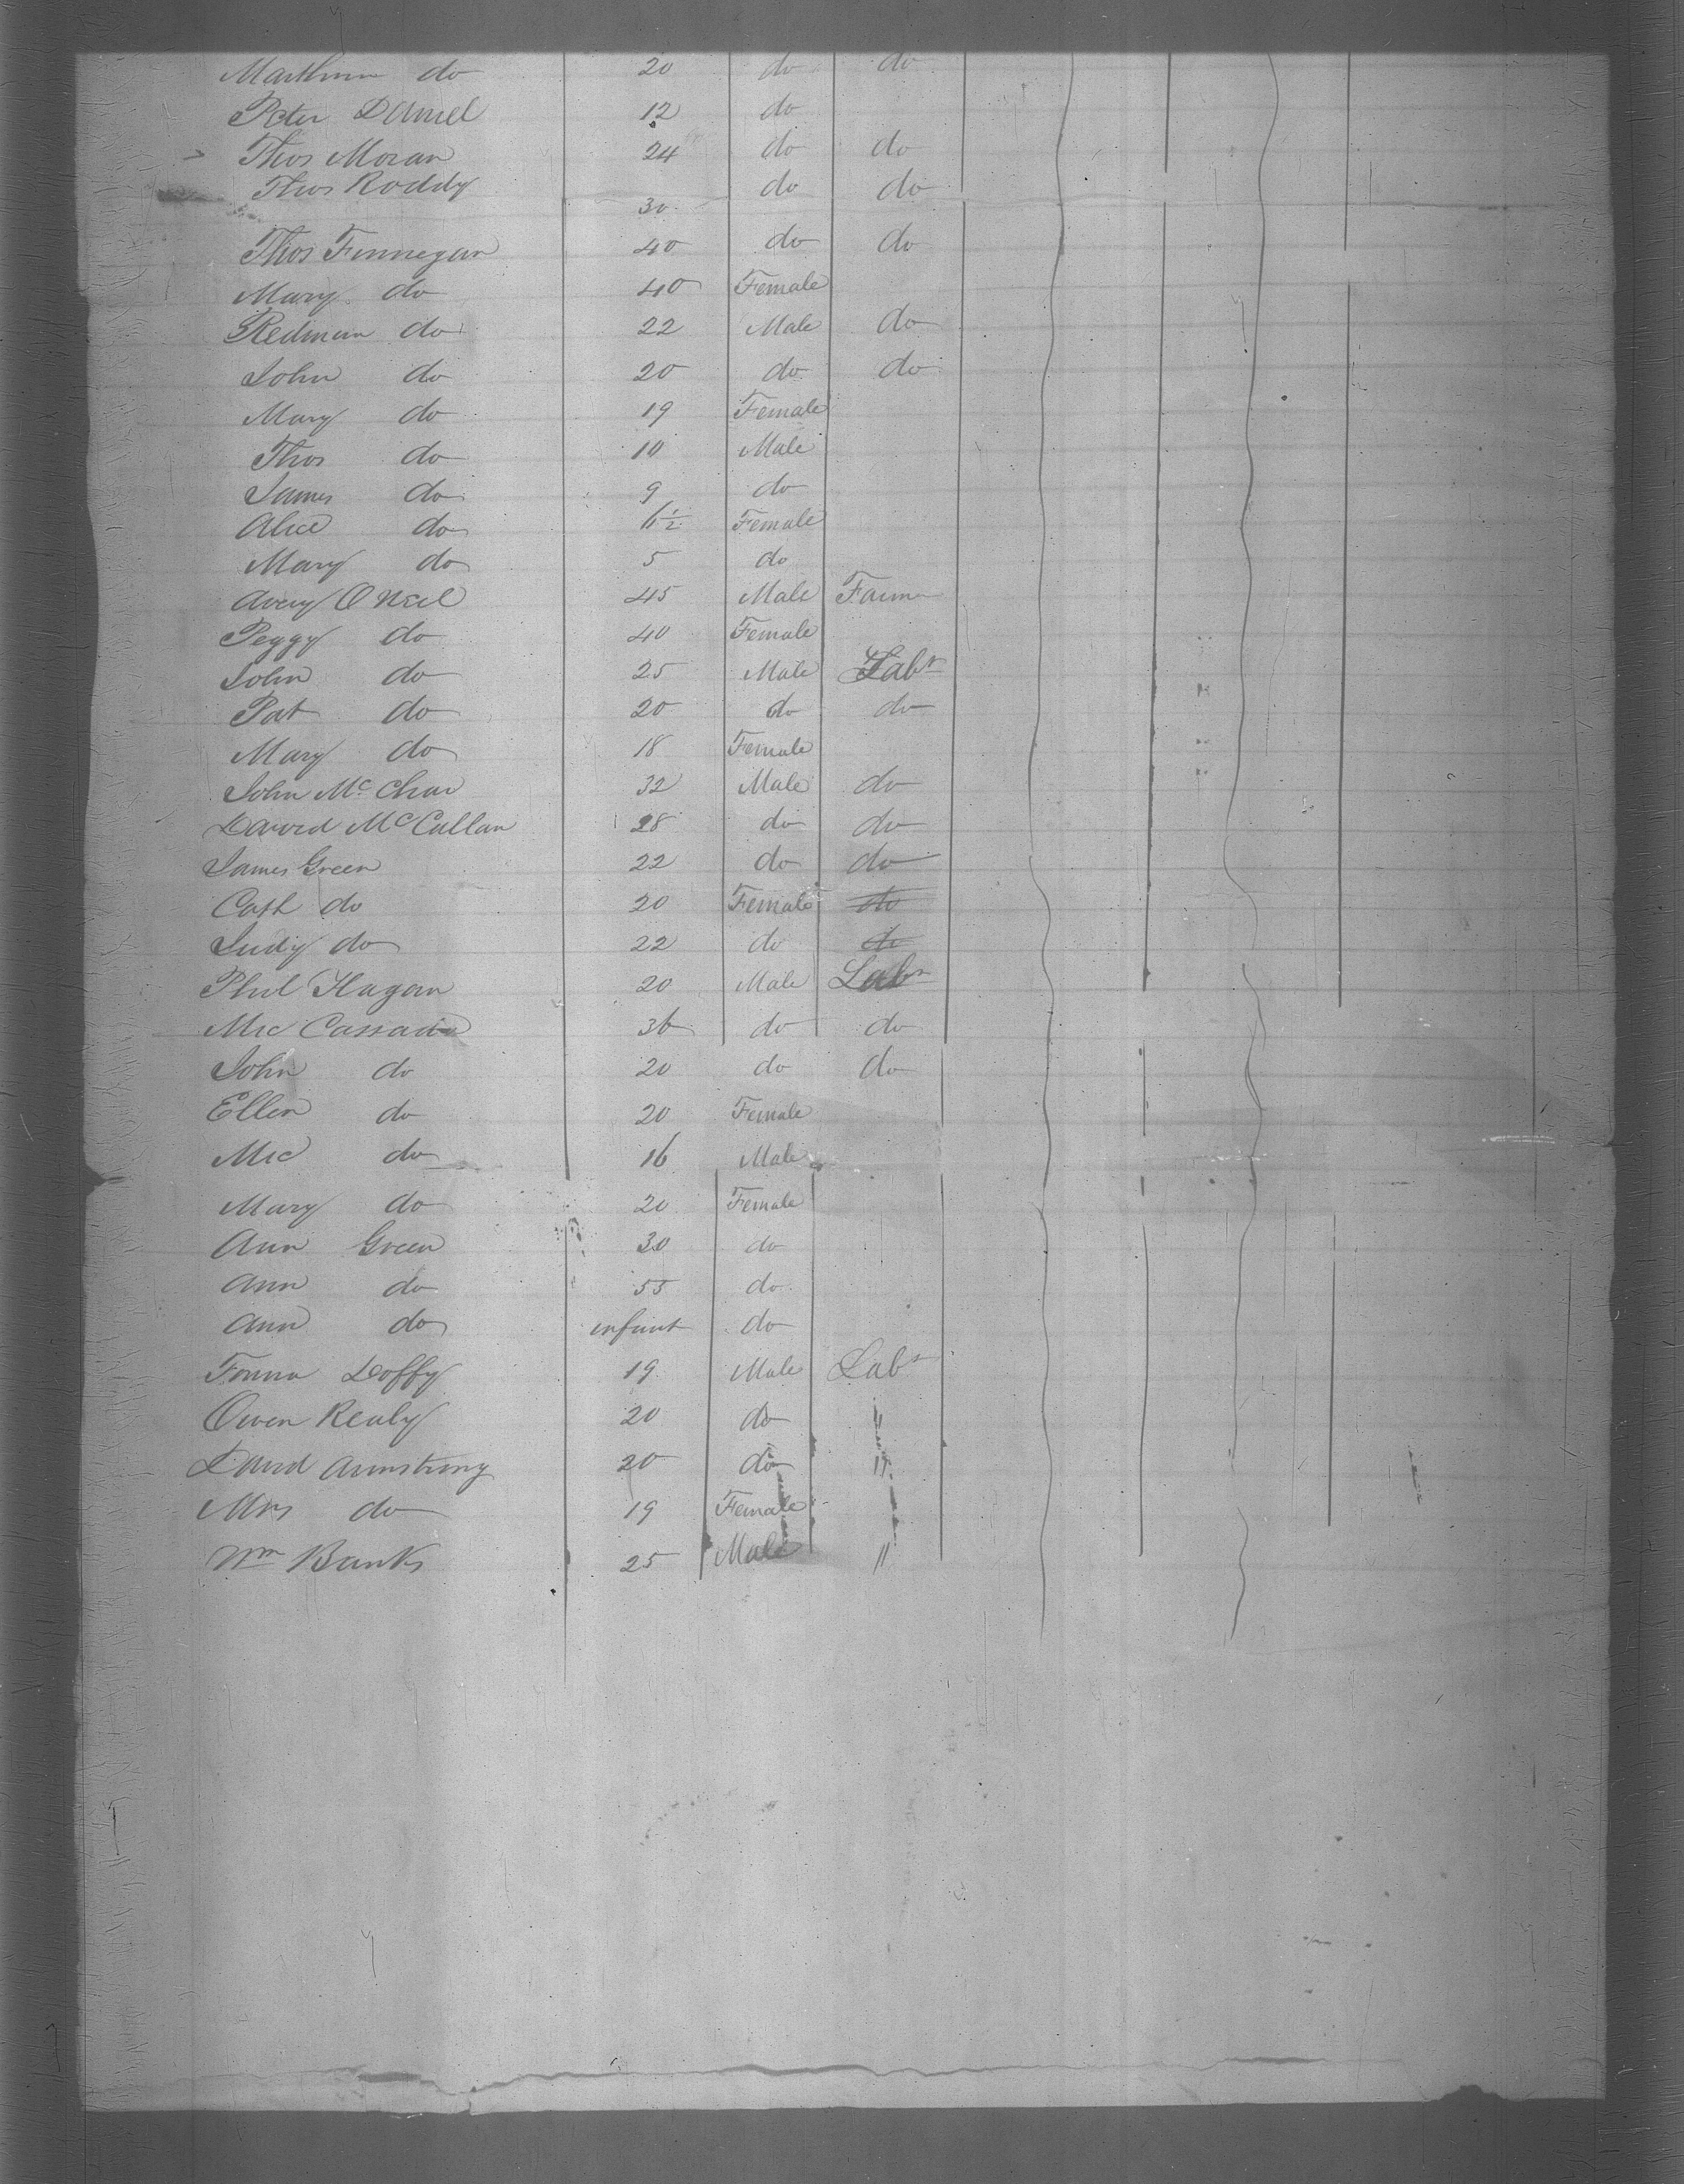 do 20 do do
Peter 12 do
Thos Moran 24 do do
Thos Roddy 30 do do
Thos Finnegan 40 do do
Mary do 40 Female
Redman do 22 Male do
John do 20 do do
Mary do 19 Female
Thos do 10 Male
James do 9 do
Alice do 6½ Female
Mary do 5 do
O Neil 45 Male Farmr
Peggy do 40 Female
John do 25 Male Labr
Pat do 20 do do
Mary do 18 Female
John Mc Char 32 Male do
David McCullan 28 do do
James Green 22 do do
Cath do 20 Female do
Judy do 22 do do
Phil Hagan 20 Male Labr
Mic 36 do do
John do 20 do do
Ellen do 20 Female
Mic do 16 Male
Mary do 20 Female
Ann Green 30 do
Ann do 55 do
Ann do infant do
Doffy 19 Male Labr
Owen Realy 20 do "
David Armstrong 20 do "
Mrs do 19 Female
Wm Banks 25 Male "